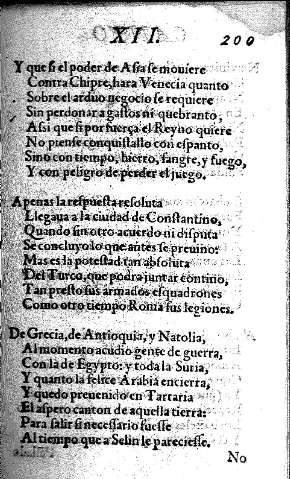 XII. 200
Y que si el poder de Asia se mouiere
Contra Chipre, hara Venecia quanto
Sobre el arduo negocio se requiere
Sin perdonar a gastos ni quebranto,
Assi que si por fuerça el Reyno quiere
No piense conquistallo con espanto,
Sino con tiempo, hierro, sangre, y fuego,
Y con peligro de perder el juego.
Apenas la respuesta resoluta
Llegaua a la ciudad de Constantino,
Quando sin otro acuerdo ni disputa
Se concluyo lo que antes se preuino:
Mas es la potestad tan absoluta
Del Turco, que podra juntar contino,
Tan presto sus armados esquadrones
Como otro tiempo Roma sus legiones.
De Grecia, de Antioquia, y Natolia,
Al momento acudio gente de guerra,
Con la de Egypto: y toda la Suria,
Y quanto la felice Arabia encierra,
Y quedo preuenido en Tartaria
El aspero canton de aquella tierra:
Para salir si necessario fuesse
Al tiempo que a Selin le pareciesse.
No